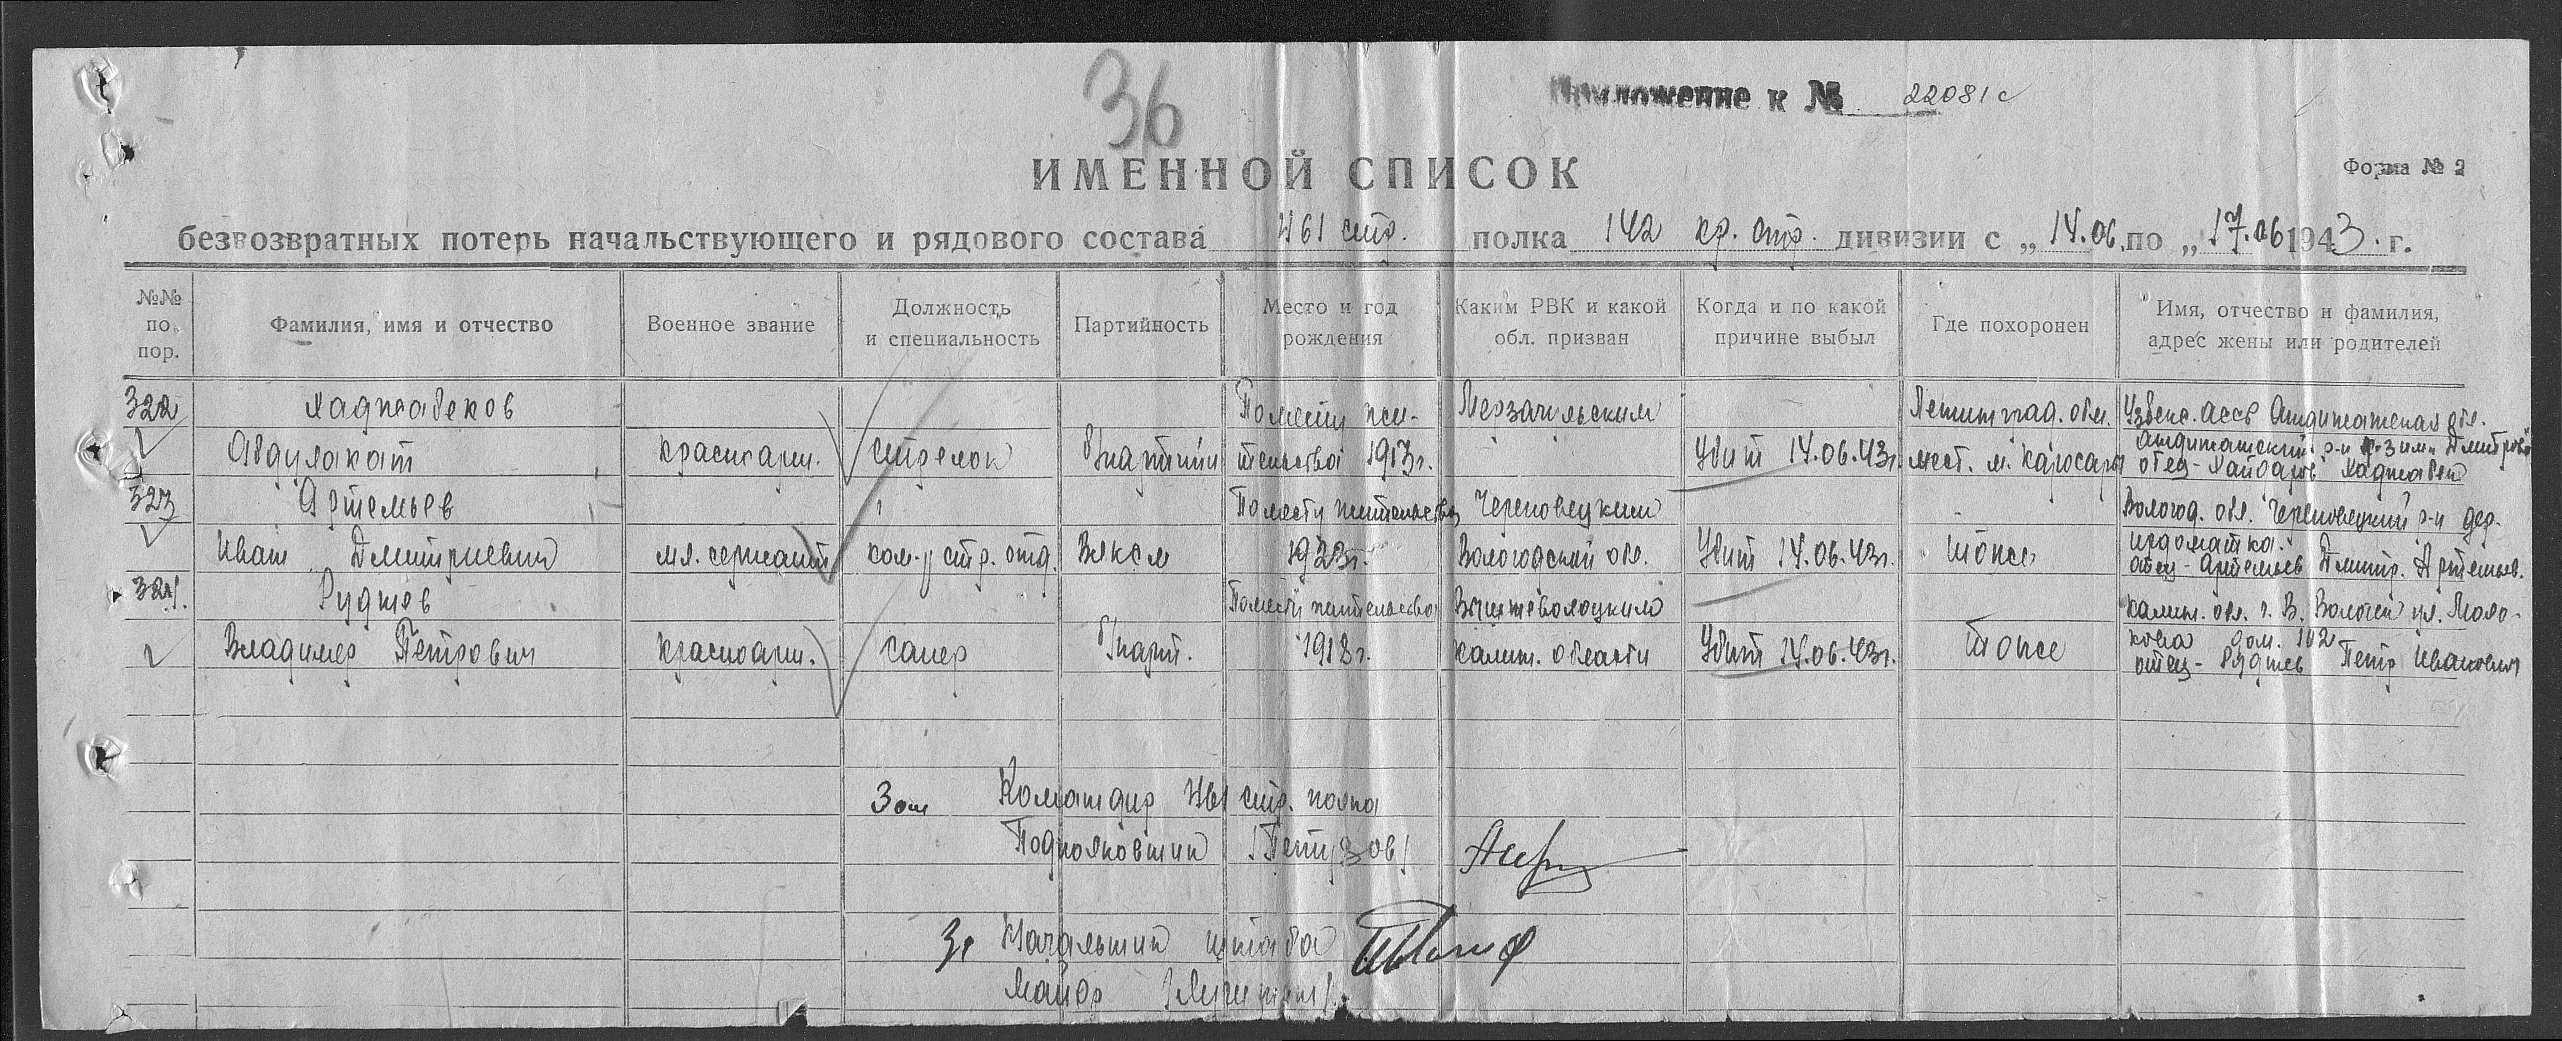 36
Приложение к № 22081с
ИМЕННОЙ СПИСОК
Форма № 2
безвозвратных потерь начальствующего и рядового состава 461 стр. полка 142 кр. стр. дивизии с „14.06. по „17.06 1943. г.
№№ по пор.
Фамилия, имя и отчество
Военное звание
Должность и специальность
Партийность
Место и год рождения
Каким РВК и какой обл. призван
Когда и по какой причине выбыл
Где похоронен
Имя, отчество и фамилия, адрес жены или родителей
322 Хаджабеков По месту жи- Ленинград. обл. Узбекс. асср Андижанская обл.
Абдулахат красноарм. стрелок б/партийн тельства 1913г. Убит 14.06.43г. мест. м. Каросары Андижанский р-н к-з им. Дмитрова
отец - Хаджабек
323 Артемьев По месту жительства Череповецким Вологод. обл. Череповецкий р-н дер.
Иван Дмитриевич мл. сержант ком-р стр. отд. Влксм 1923г. Вологодской обл. Убит 14.06.43г. тоже
отец - Артемьев Дмитр. Артемьев.
324. Руднев По месту жительства Вышневолоцким Калин. обл. г. В. Волочек ул. Моло-
Владимир Петрович красноарм. сапер б/парт. 1918г. Калин. области Убит 14.06.43г. тоже кова дом. 102
отец - Руднев Петр Иванович
Зам Командир 461 стр. полка
Подполковник
Зр Начальник штаба
Майор